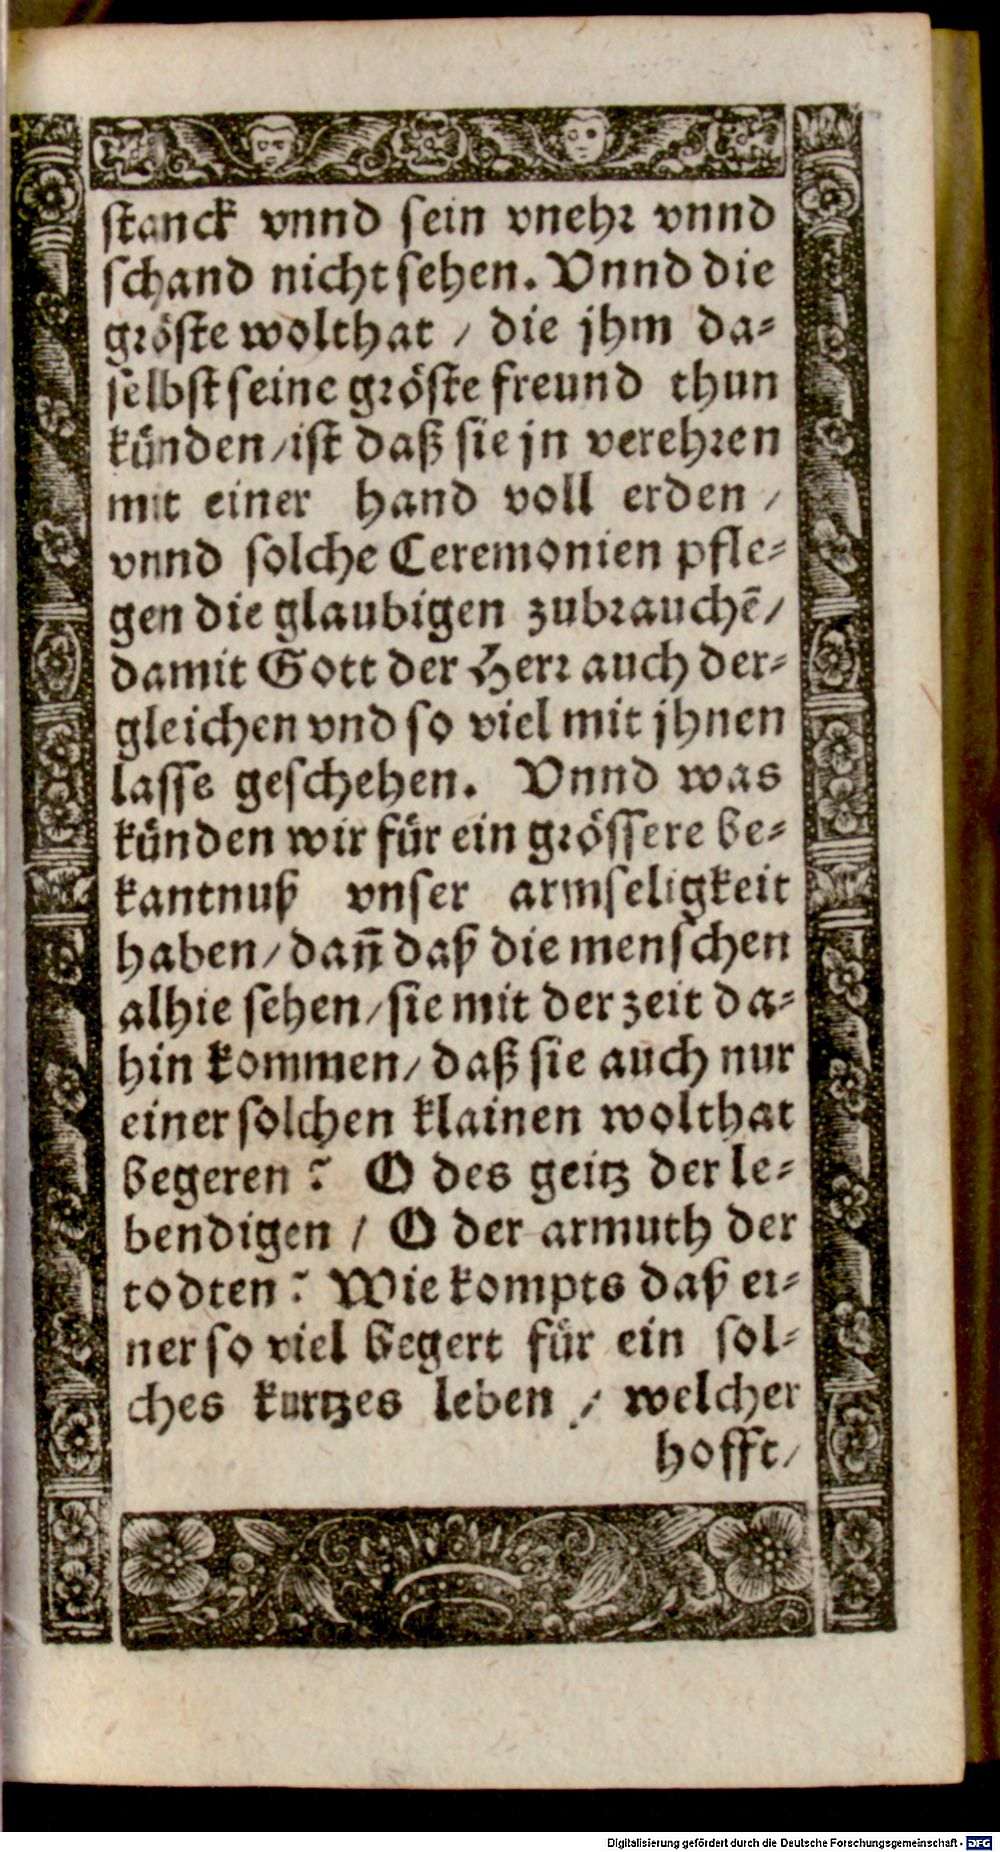 stanck vnnd sein vnehr vnnd
schand nicht sehen. Vnnd die
gröste wolthat / die jhm da=
selbst seine gröste freund thun
künden / ist daß sie jn verehren
mit einer hand voll erden /
vnnd solche Ceremonien pfle=
gen die glaubigen zubrauchē /
damit Gott der Herr auch der=
gleichen vnd so viel mit jhnen
lasse geschehen. Vnnd was
künden wir für ein grössere be=
kantnuß vnser armseligkeit
haben / dañ daß die menschen
alhie sehen / sie mit der zeit da=
hin kommen / daß sie auch nur
einer solchen klainen wolthat
begeren? O des geitz der le=
bendigen / O der armuth der
todten? Wie kompts daß ei=
ner so viel begert für ein sol=
ches kurtzes leben / welcher
hofft /
Digitalisierung gefördert durch die Deutsche Forschungsgemeinschaft - DFG